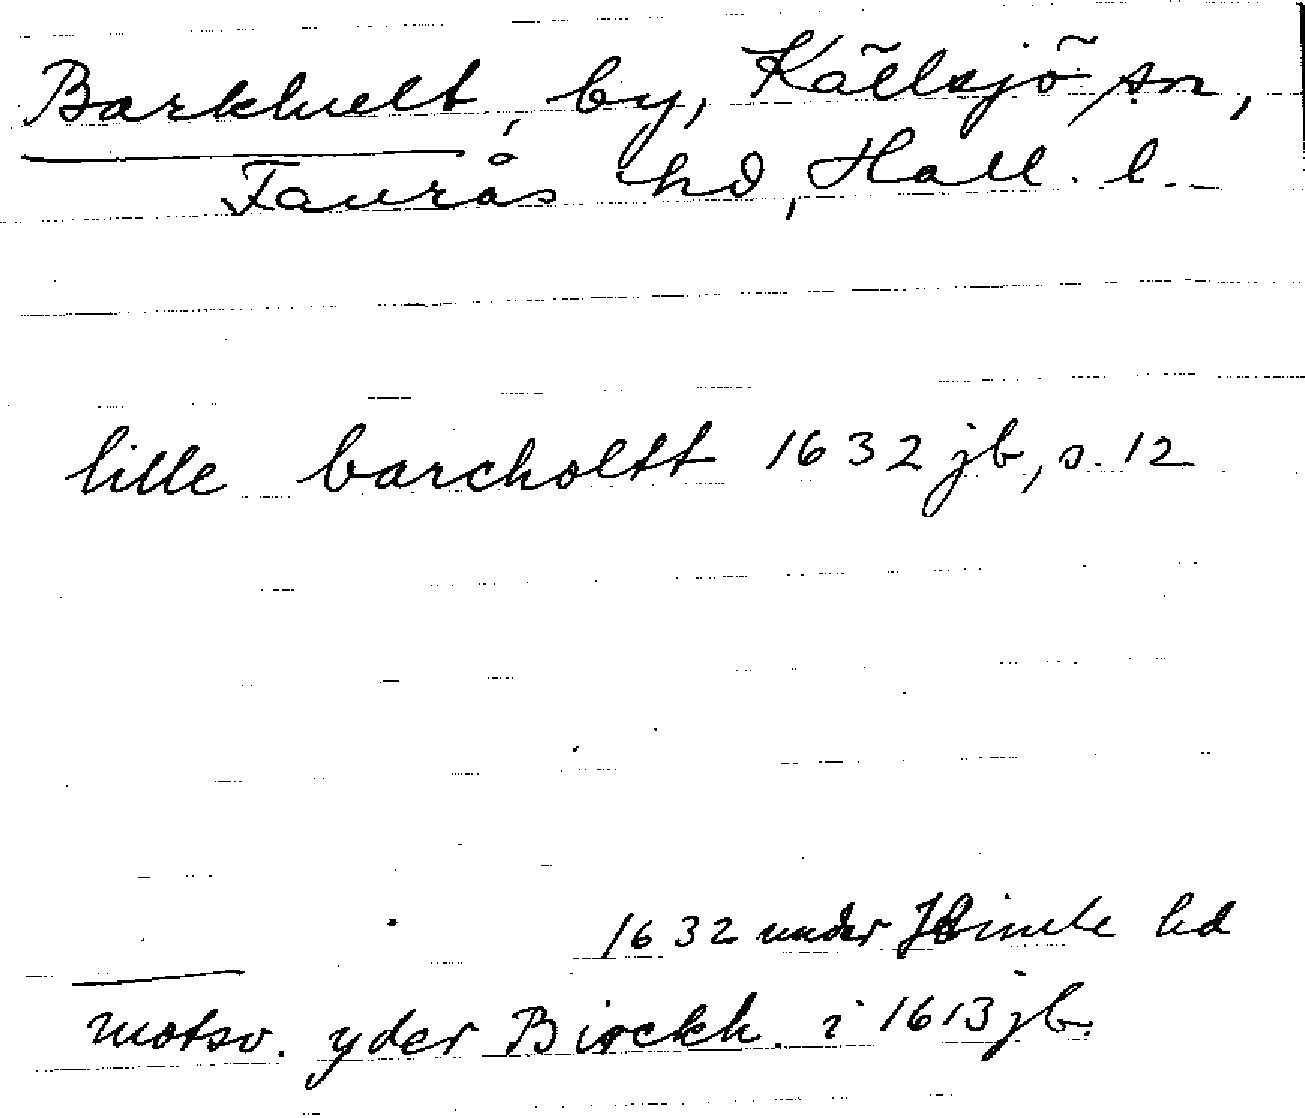 Barkhult, by, Källsjö sn,
Faurås hd, Hall. l.
lille barcholtt 1632 jb, s. 12
1632 under Himle hd
motsv. yder Birckh. i 1613 jb.